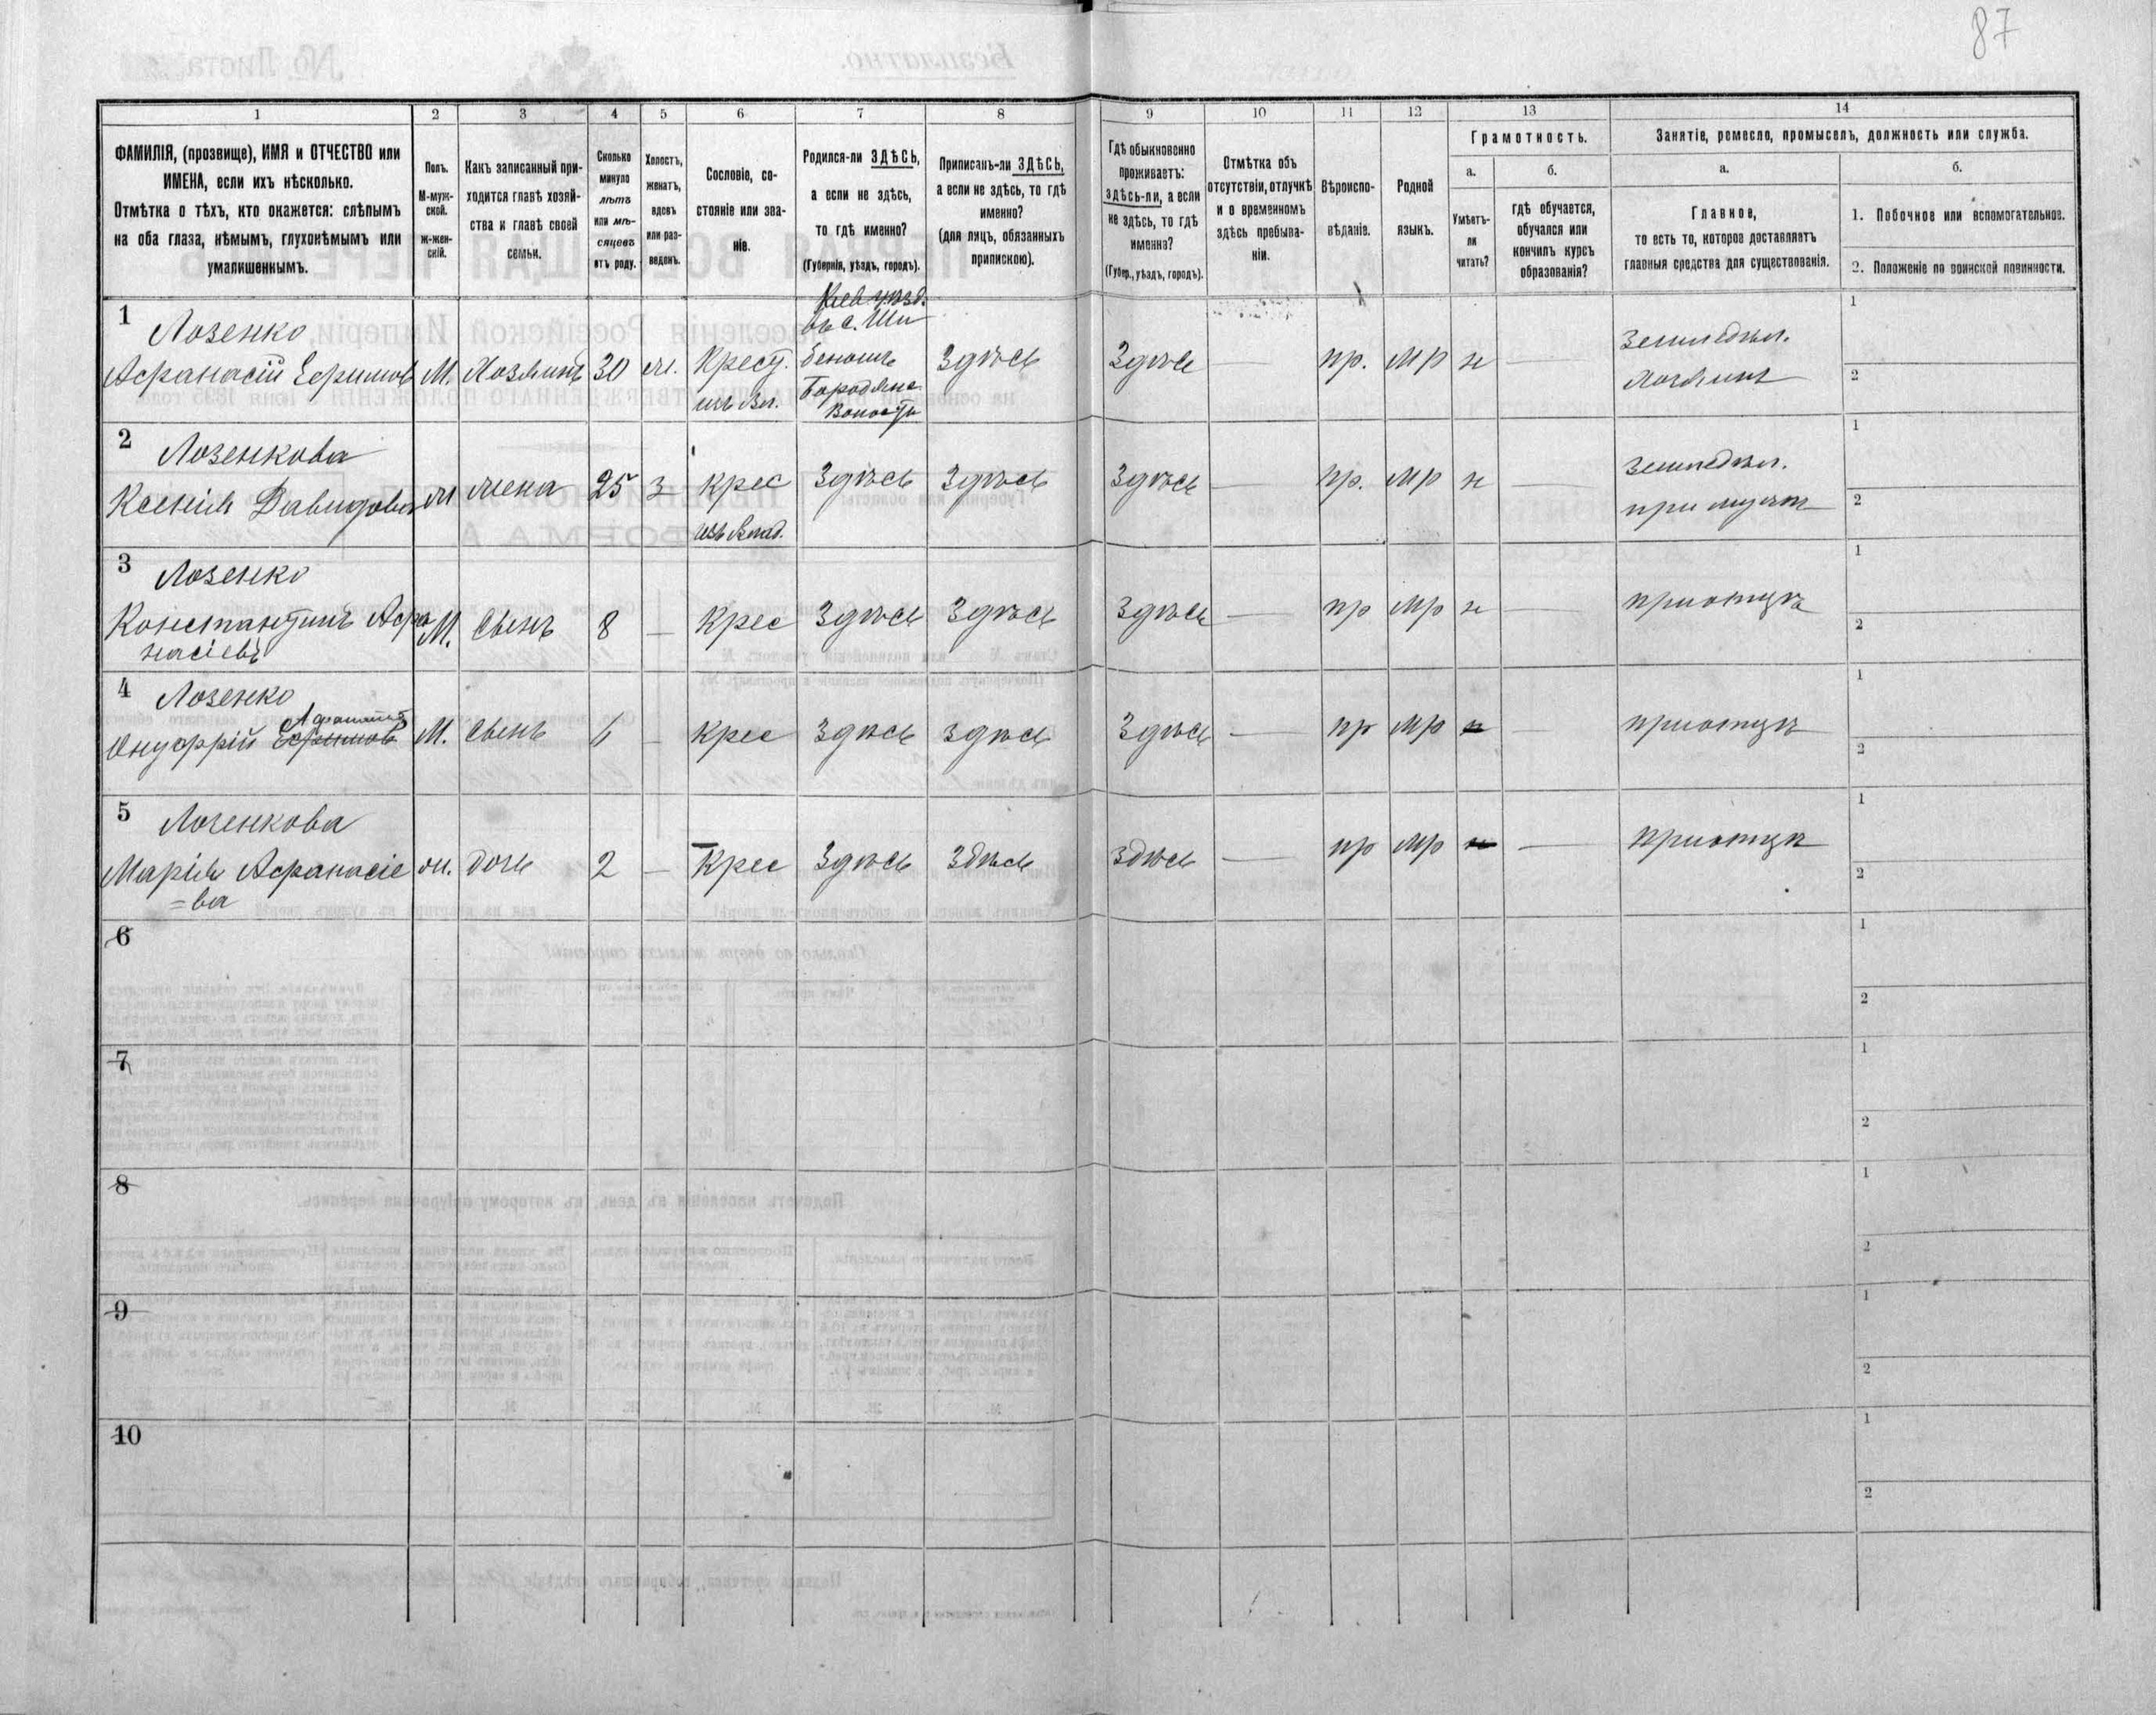 87
1
2
3
4
5
6
7
8
9
10
11
12
13
14
ФАМИЛІЯ, (прозвище), ИМЯ и ОТЧЕСТВО или
ИМЕНА, если ихъ нѣсколько.
Отмѣтка о тѣхъ, кто окажется: слѣпымъ
на оба глаза, нѣмымъ, глухонѣмымъ или
умалишеннымъ.
Полъ.
М-муж-
ской.
Ж-жен-
скій.
Какъ записанный при-
ходится главѣ хозяй-
ства и главѣ своей
семьи.
Сколько
минуло
лѣтъ
или мѣ-
сяцевъ
отъ роду.
Холостъ,
женатъ,
вдовъ
или раз-
веденъ.
Сословіе, со-
стояніе или зва-
ніе.
Родился-ли ЗДѢСЬ,
а если не здѣсь,
то гдѣ именно?
(Губернія, уѣздъ, городъ).
Приписанъ-ли ЗДѢСЬ,
а если не здѣсь, то гдѣ
именно?
(для лицъ, обязанныхъ
припискою).
Гдѣ обыкновенно
проживаетъ:
здѣсь-ли, а если
не здѣсь, то гдѣ
именно?
(Губер., уѣздъ, городъ).
Отмѣтка объ
отсутствіи, отлучкѣ
и о временномъ
здѣсь пребыва-
ніи.
Вѣроиспо-
вѣданіе.
Родной
языкъ.
Грамотность.
а.
Умѣетъ-
ли
читать?
б.
гдѣ обучается,
обучался или
кончилъ курсъ
образованія?
Занятіе, ремесло, промыселъ, должность или служба.
а.
Главное,
то есть то, которое доставляетъ
главныя средства для существованія.
б.
1. Побочное или вспомогательное.
2. Положеніе по воинской повинности.
1
Лозенко
Афанасій Ефимовъ М. Хозяинъ 30 ж. Крест.
изъ Вл.
Кіев. уѣзд.
въ с. Ши
беномъ
Бородянс.
Волости
Здѣсь Здѣсь — пр. мр н — Земледѣл.
хозяинъ
1
2
2
Лозенкова
Ксенія Давидова ж жена 25 з крес
изъ Влад.
Здѣсь Здѣсь Здѣсь — пр. мр н — земледѣл.
при мужѣ
1
2
3
Лозенко
Константинъ Афа
насіевъ
М. Сынъ 8 — Крес Здѣсь Здѣсь Здѣсь — пр мр н — приотцѣ
1
2
4
Лозенко
Онуфрій Ефимовъ М. Сынъ 6 — крес Здѣсь Здѣсь Здѣсь — пр мр н — приотцѣ
1
2
5
Лозенкова
Марія Афанасіе
=ва
ж. дочь 2 — Крес Здѣсь Здѣсь здѣсь — пр мр н — приотцѣ
1
2
6
1
2
7
1
2
8
1
2
9
1
2
10
1
2